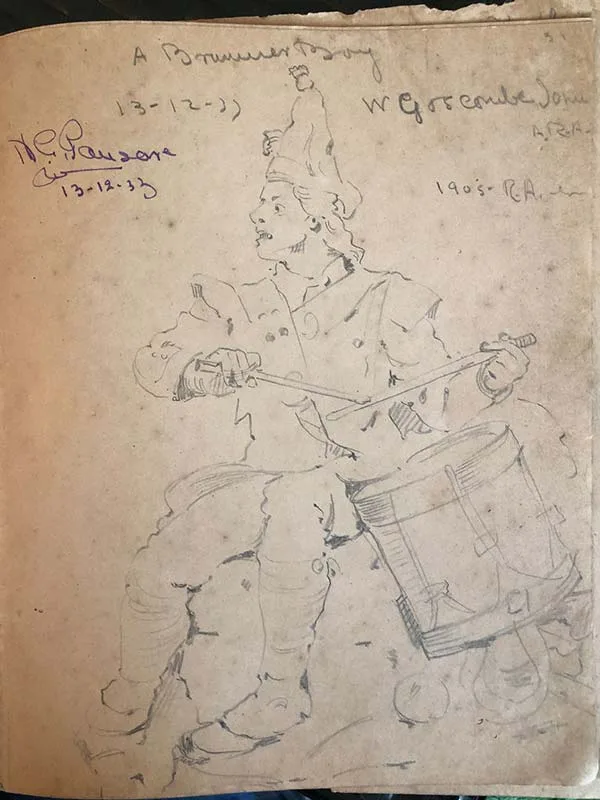 A Drummer Boy
13-12-33
W Goscombe John
A.R.A.
13-12-33
1905- R.A.